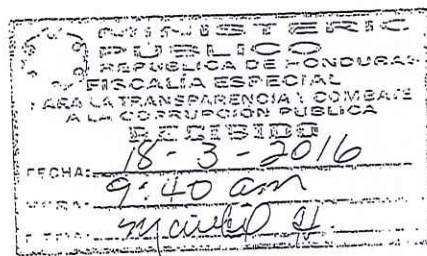 MINISTERIO
PUBLICO
REPUBLICA DE HONDURAS
FISCALIA ESPECIAL
PARA LA TRANSPARENCIA Y COMBATE
A LA CORRUPCION PUBLICA
RECIBIDO
FECHA: 18-3-2016
HORA: 9:40 am
FIRMA: